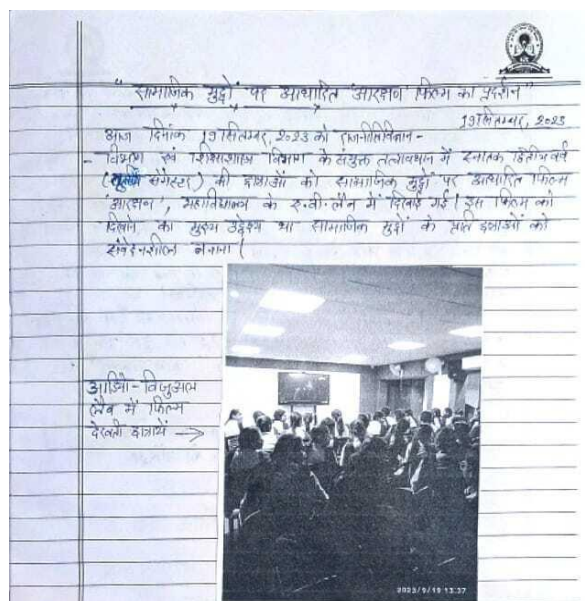 "सामाजिक मुद्दों पर आधारित 'आरक्षण' फिल्म का प्रदर्शन"
19 सितम्बर, 2023
आज दिनांक 19 सितम्बर, 2023 को राजनीतिविज्ञान -
- विभाग एवं शिक्षाशास्त्र विभाग के संयुक्त तत्वावधान में स्नातक द्वितीय वर्ष
(तृतीय सेमेस्टर) की छात्राओं को सामाजिक मुद्दों पर आधारित फिल्म
'आरक्षण', महाविद्यालय के ए.वी. लैब में दिखाई गई। इस फिल्म को
दिखाने का मुख्य उद्देश्य था सामाजिक मुद्दों के प्रति छात्राओं को
संवेदनशील बनाना।
आडियो-विजुअल
लैब में फिल्म
देखती छात्रायें →
2023/9/19 13:37